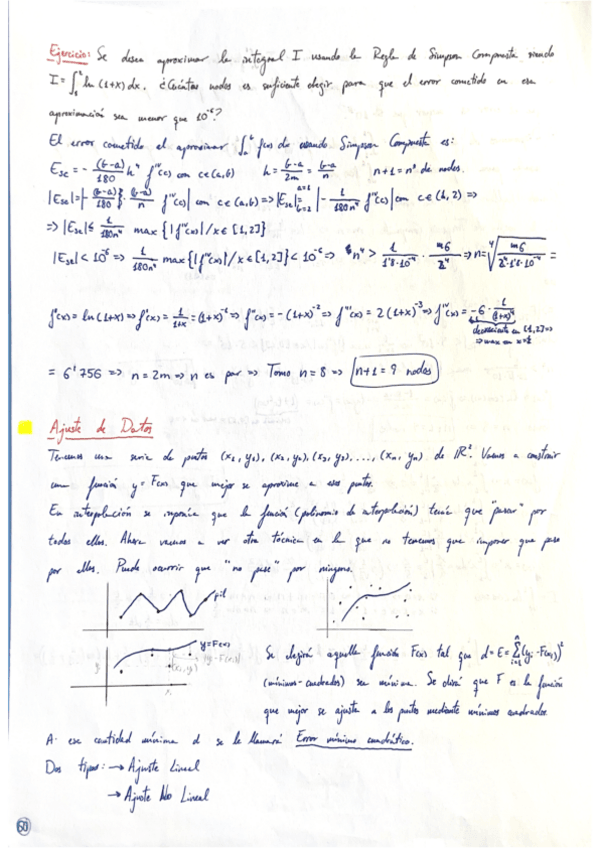 Ejercicio: Se desea aproximar la integral I usando la Regla de Simpson Compuesta siendo
I = ∫₁² ln (1+x) dx. ¿Cuántos nodos es suficiente elegir para que el error cometido en esa
aproximación sea menor que 10⁻⁶?
El error cometido al aproximar ∫ₐᵇ f(x) dx usando Simpson Compuesta es:
E_SC = - (b-a)/180 h⁴ f^IV(c) con c∈(a,b)   h = (b-a)/2m = (b-a)/n   n+1 = nº de nodos.
=> |E_SC| ≤ 1/180n⁴ max{|f^IV(x)| / x∈[1,2]}
|E_SC| < 10⁻⁶ => 1/180n⁴ max{|f^IV(x)| / x∈[1,2]} < 10⁻⁶ =>
f(x) = ln(1+x) => f'(x) = 1/(1+x) = (1+x)⁻¹ => f''(x) = -(1+x)⁻² => f'''(x) = 2(1+x)⁻³ => f^IV(x) = -6 · 1/(1+x)⁴
decreciente en [1,2] =>
=> max en x=1
= 6'756 => n = 2m => n es par => Tomo n = 8 => n+1 = 9 nodos
Ajuste de Datos
Tenemos una serie de puntos (x₁, y₁), (x₂, y₂), (x₃, y₃), ..., (xₙ, yₙ) de ℝ². Vamos a construir
una función y = F(x) que mejor se aproxime a esos puntos.
En interpolación se imponía que la función (polinomio de interpolación) tenía que "pasar" por
todos ellos. Ahora vamos a ver otra técnica en la que no tenemos que imponer que pase
por ellos. Puede ocurrir que "no pase" por ninguno.
y=F(x)
Se elegirá aquella función F(x) tal que d = E = Σᵢ₌₁ⁿ (yᵢ - F(xᵢ))²
(mínimos-cuadrados) sea mínima. Se dirá que F es la función
que mejor se ajusta a los puntos mediante mínimos cuadrados.
A esa cantidad mínima d se le llamará Error mínimo cuadrático.
Dos tipos: → Ajuste Lineal
→ Ajuste No Lineal
60